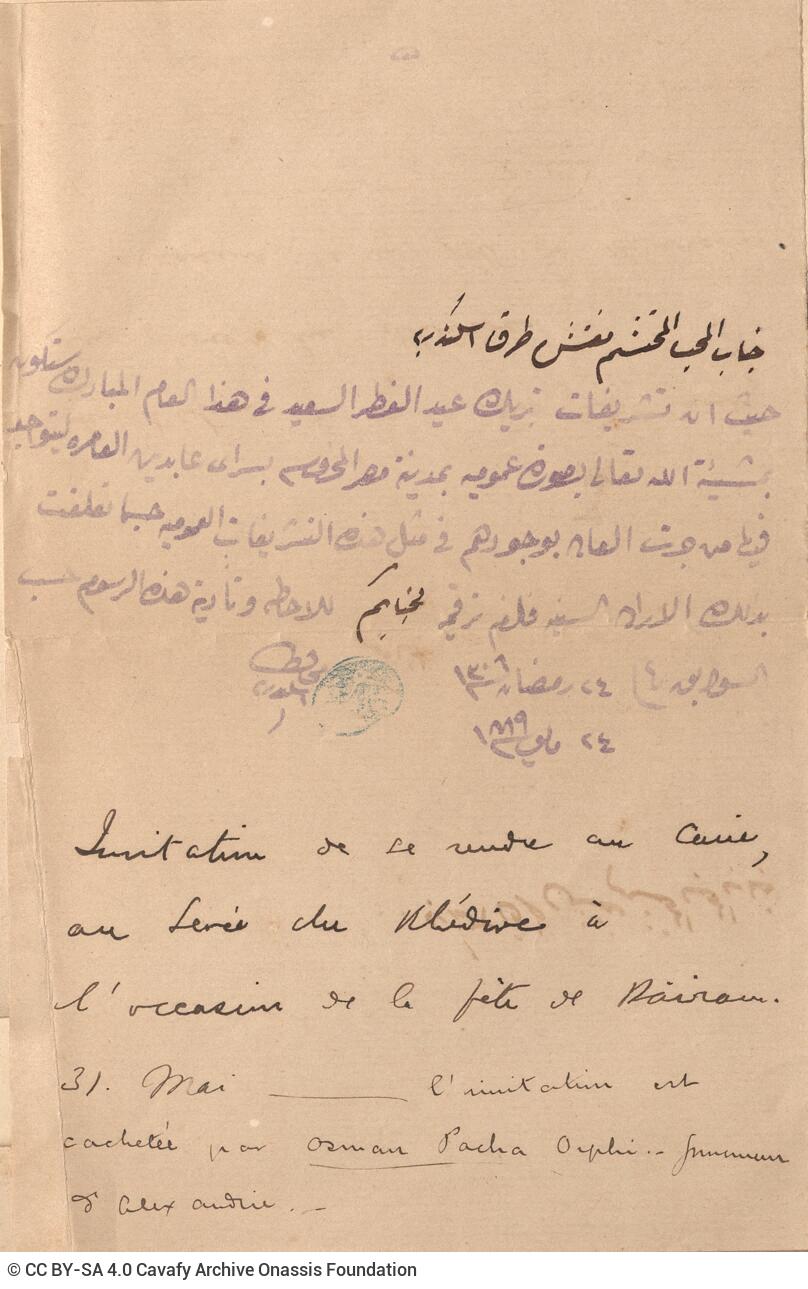 جناب المحب المحتشم مفتش طرق اسكندرية
حيث ان تشريفات تبريك عيد الفطر السعيد فى هذا العام المبارك ستكون
بمشيئة الله تعالى بصورة عمومية بمدينة مصر المحروسة بسراى عابدين العامره ليتواجد
فيها من جرت العادة بوجودهم فى مثل هذه التشريفات العموميه حسبما تعلقت
بذلك الارادة السنيه فلزم ترقيمه لجنابكم للاحاطه وتأدية هذه الرسوم حسب
السوابق ٢٤ رمضان ١٣٠٦
محافظ
اسكندرية
٢٤ مايو ١٨٨٩
Invitation de se rendre au Caire,
au Serée du Khédive à
l'occasion de la fête de Bairam.
31. Mai ——— l'invitation est
cachetée par Osman Pacha Orphi.-
d'Alexandrie. –
© CC BY-SA 4.0 Cavafy Archive Onassis Foundation